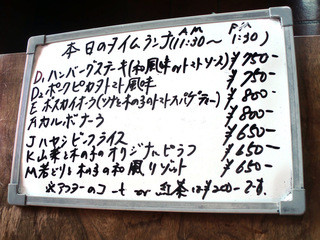 本日のタイムランチ(11:30〜1:30)
AM PM
D₁ ハンバーグステーキ(和風味のトマトソース) ¥750-
D₂ ポークピカタトマト風味 ¥750-
E ボスカイオーラ(ツナと木の子のトマトスパゲティー) ¥800-
F カルボナーラ ¥800-
J ハヤシビーフライス ¥650-
K 山菜と木の子のオリジナルピラフ ¥650-
M 若どりと木の子の和風リゾット ¥650-
※アフターのコーヒー or 紅茶は¥200-です。